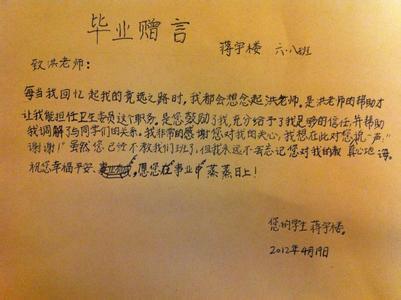 毕业赠言
蒋宇楼 六.八班
致洪老师:
每当我回忆起我的竞选之路时,我都会想念起洪老师,是洪老师的帮助才
让我能担任卫生委员这个职务。是您鼓励了我,充分给予了我足够的信任,并帮助
我调解了与同学们的关系。我非常的感谢您对我的关心,我想在此对您说一声"
谢谢!"虽然您已经不教我们班了,但我永远不会忘记您对我的教 真心地 诲。
祝您幸福平安、愿您在事业中蒸蒸日上!
您的学生 蒋宇楼。
2012年4月19日